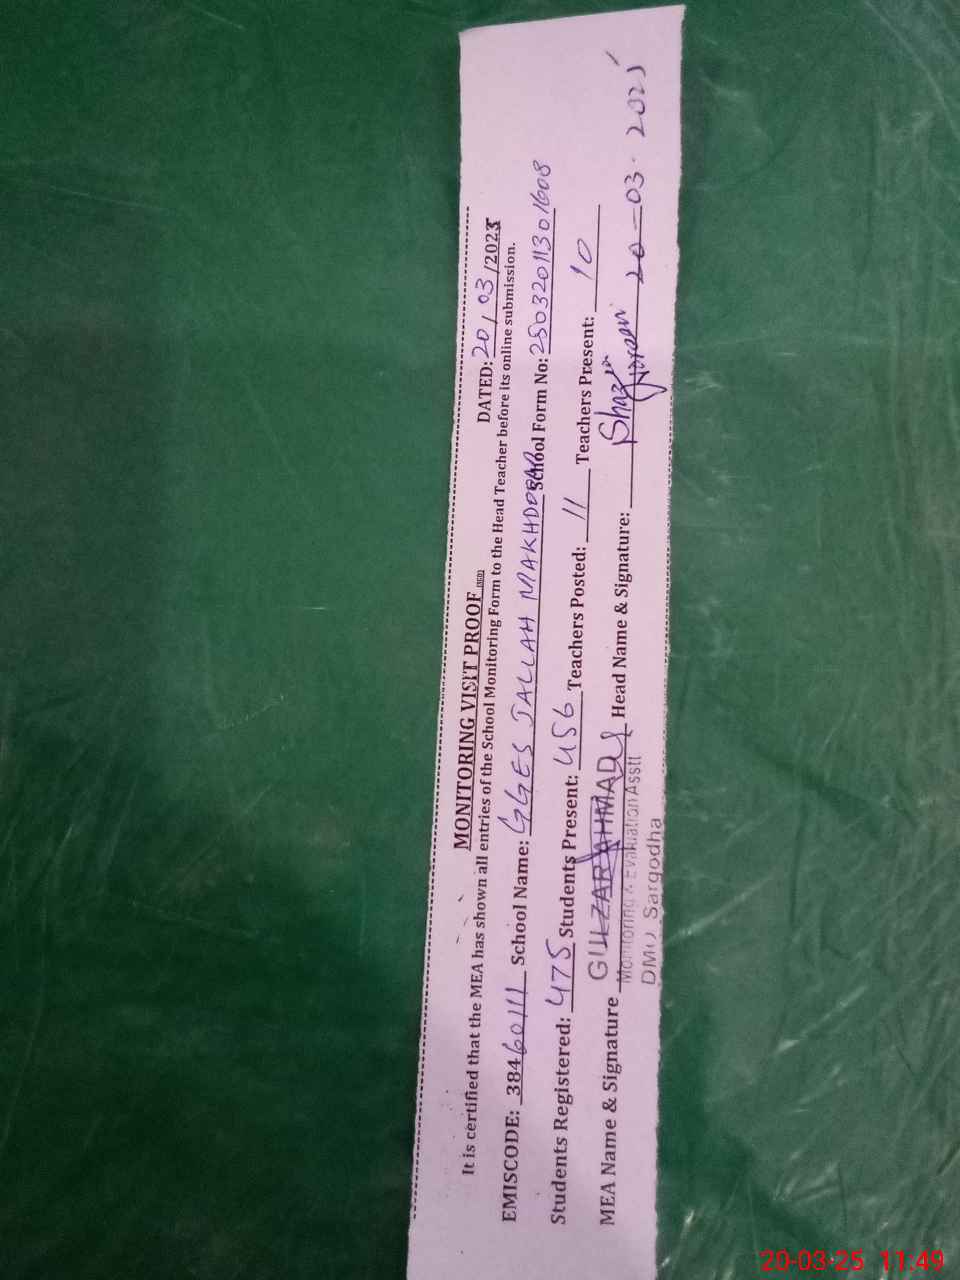 MONITORING VISIT PROOF
DATED: 20/03/2025
It is certified that the MEA has shown all entries of the School Monitoring Form to the Head Teacher before its online submission.
EMISCODE: 38460111 School Name: GGES JALLAH MAKHDOOM School Form No: 25032011301608
Students Registered: 475 Students Present: 456 Teachers Posted: 11 Teachers Present: 10
MEA Name & Signature GULZAR AHMAD Head Name & Signature: Shazia 20-03-2025
Monitoring & Evaluation Asstt
DMO Sargodha
20-03-25 11:49